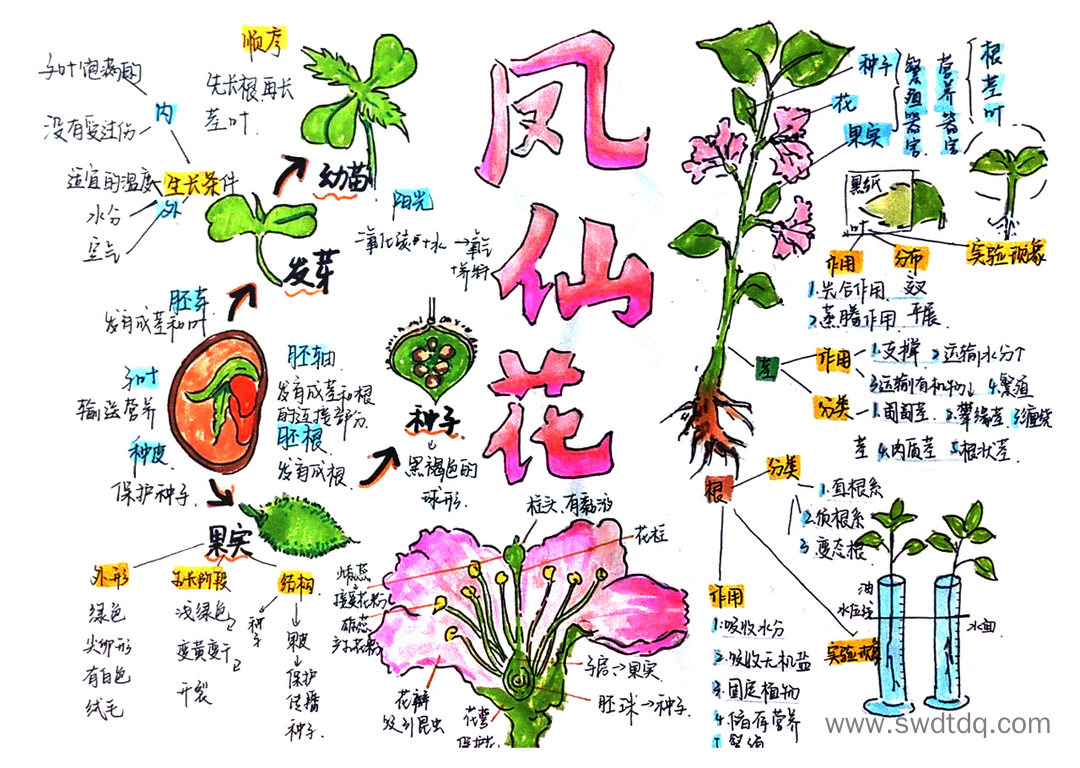 凤仙花
顺序
先长根,再长
茎叶.
子叶饱满的
内
没有受过伤
适宜的温度
生长条件
外
水分
空气
幼苗
阳光
二氧化碳+水→氧气
发芽
胚芽
发育成茎和叶
子叶
输送营养
种皮
保护种子
胚轴
发育成茎和根
的连接部分.
胚根
发育成根
种子
黑褐色的
球形.
果实
外形
绿色
尖卵形
有白色
绒毛
生长阶段
浅绿色
变黄变干
开裂
结构
种子
果皮
保护
传播
种子.
柱头,有黏液
花柱
雌蕊
接受花粉
雄蕊
子房→果实
胚珠→种子.
花瓣
吸引昆虫
花萼
保护花
种子
花
果实
繁殖器官
营养器官
根
茎
叶
黑纸
叶
作用
1.光合作用
2.蒸腾作用
分布
交叉
平展
实验现象
茎
作用
1.支撑 2.运输水分个
3.运输有机物↓ 4.繁殖
分类
1.直立茎
2.攀缘茎
茎 4.肉质茎 5.根状茎.
根
分类
1.直根系
2.须根系
3.变态根
作用
1.吸收水分
2.吸收无机盐
3.固定植物
4.储存营养
5.繁殖
实验现象
油
水位线
水面
www.swdtdq.com